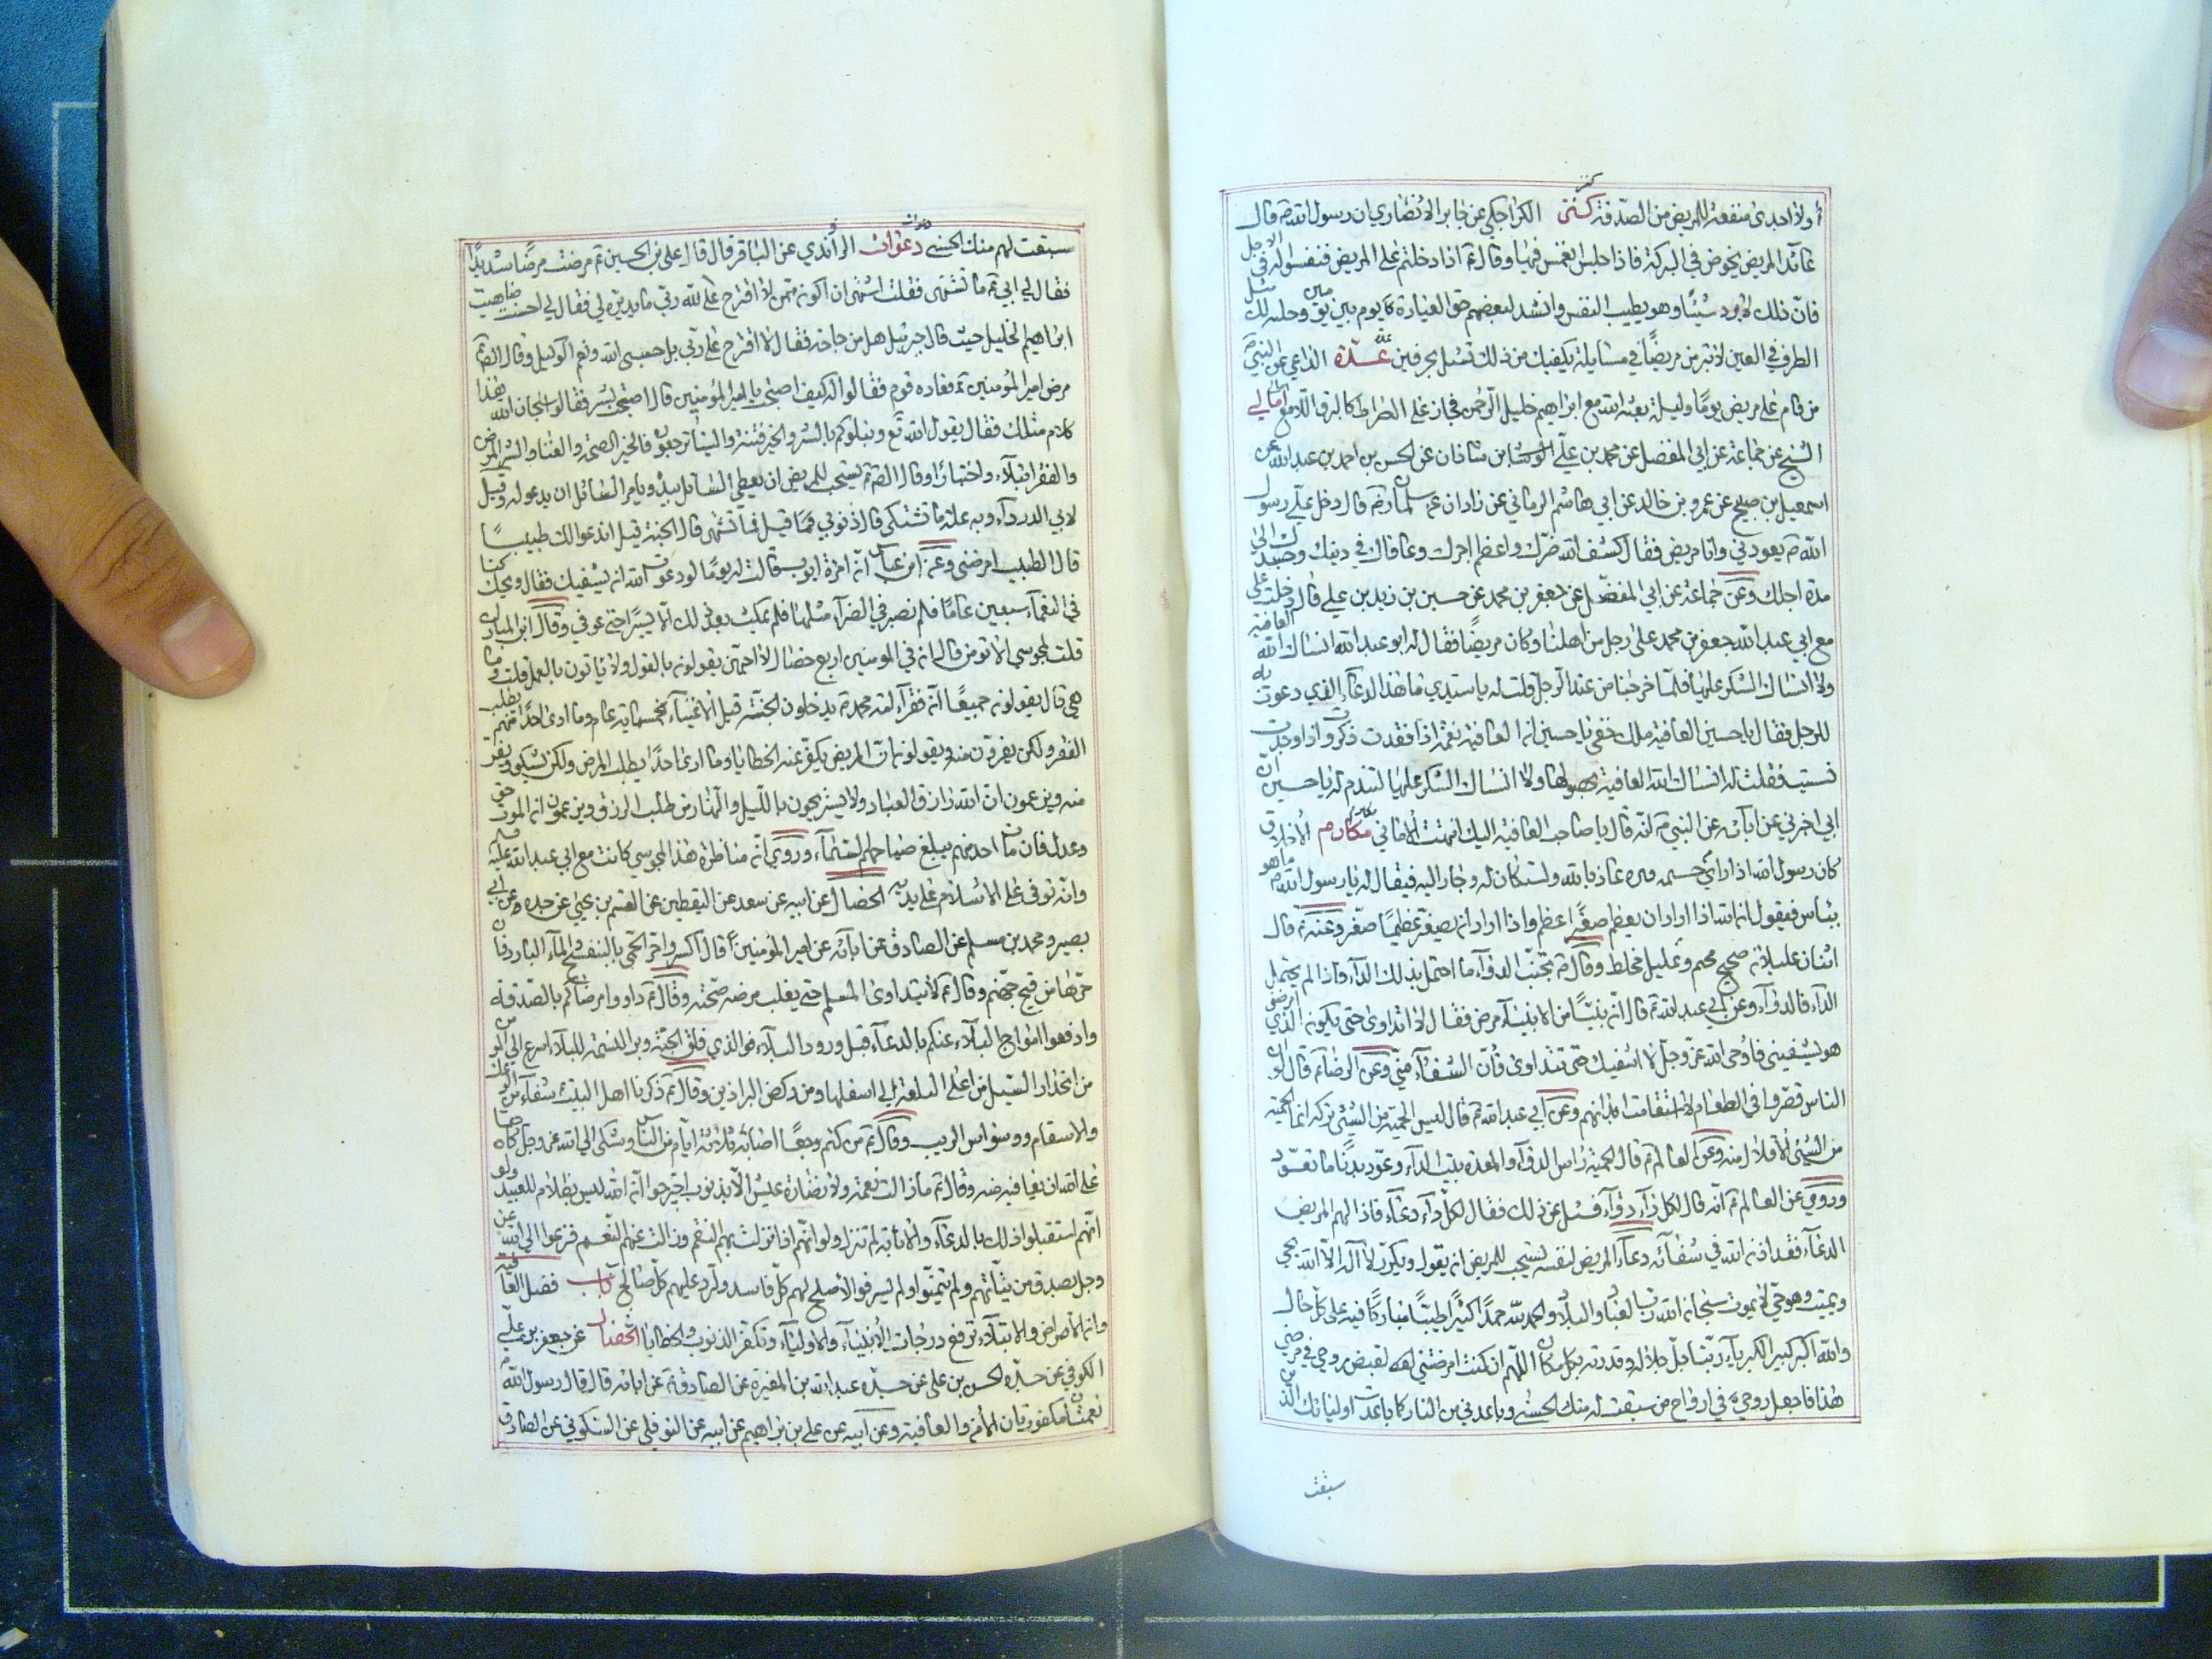 أولا اجدى منفعة للمريض من الصدقة كنز الكراجكي عن جابر الانصاري ان رسول الله ص قال
عائد المريض يخوض في البركة فاذا جلس انغمس فيها وقال ع اذا دخلتم على المريض فنفسوا له في الاجل
فان ذلك لا يرد شيئا وهو يطيب النفس وانشد لبعضهم حق العيادة يوم بين يومين وجلسة لك مثل
الطرف في العين لا تبرمن مريضا في مسائلة يكفيك من ذلك تسئل بحرفين عدة الداعي عن النبي ص
من قام على مريض يوما وليلة بعثه الله مع ابراهيم خليل الرحمن فجاز على الصراط كالبرق اللامع امالي
الشيخ عن جماعة عن ابي المفضل عن محمد بن علي بن شاذان عن الحسن بن احمد بن عبد الله عن
اسمعيل بن صبيح عن عمرو بن خالد عن ابي هاشم الرماني عن زاذان عن سلمان رض قال دخل علي رسول
الله ص يعودني وانا مريض فقال كشف الله ضرك واعظم اجرك وعافاك في دينك وجسدك الى
مدة اجلك وعن جماعة عن ابي المفضل عن جعفر بن محمد عن حسين بن زيد بن علي قال دخلت على
مع ابي عبد الله جعفر بن محمد على رجل من اهلنا وكان مريضا فقال له ابو عبد الله انساك الله العافية
ولا انساك الشكر عليها فلما خرجنا من عند الرجل قلت له يا سيدي ما هذا الدعاء الذي دعوت به
للرجل فقال يا حسين العافية ملك خفي يا حسين ان العافية نعمة اذا فقدت ذكرت واذا وجدت
نسيت فقلت له انساك الله العافية بحصولها ولا انساك الشكر عليها لتدم له يا حسين ان
ابي اخبرني عن ابائه عن النبي ص انه قال يا صاحب العافية اليك انتهت الاماني مكارم الاخلاق
كان رسول الله اذا راى من جسمه بثرة عاذ بالله واستكان له وجار اليه فيقال له يا رسول الله ص ما هو
ببأس فيقول ان الله اذا اراد ان يعظم صغيرا عظم واذا اراد ان يصغر عظيما صغر وعنه ع قال
اثنان عليلان صحيح محتم وعليل مخلط وقال ع تجنب الدواء ما احتمل بدنك الداء فاذا لم يحتمل
الداء فالدواء وعن ابي عبد الله ع قال ان نبيا من الانبياء مرض فقال لا اتداوى حتى يكون الذي امرضني
هو يشفيني فاوحى الله عز وجل لا اشفيك حتى تتداوى فان الشفاء مني وعن الرضا ع قال لو ان
الناس قصروا في الطعام لاستقامت ابدانهم وعن ابي عبد الله ع قال ليس الحمية من الشيء تركه انما الحمية
من الشيء الاقلال منه وعن العالم ع قال الحمية راس الدواء والمعدة بيت الداء وعود بدنا ما تعود
وروي عن العالم ع انه قال لكل داء دواء فسئل عن ذلك فقال لكل داء دعاء فاذا الهم المريض
الدعاء فقد اذن الله في شفائه دعاء المريض لنفسه يستحب للمريض ان يقول ويكرر لا اله الا الله يحيي
ويميت وهو حي لا يموت سبحان الله رب العباد والبلاد والحمد لله حمدا كثيرا طيبا مباركا فيه على كل حال
والله اكبر كبيرا كبرياء ربنا جلاله وقدرته بكل مكان اللهم ان كنت امرضتني لقبض روحي في مرضي
هذا فاجعل روحي في ارواح من سبقت له منك الحسنى وباعدني من النار كما باعدت اولياءك الذين
سبقت
سبقت لهم منك الحسنى دعوات الراوندي عن الباقر قال قال علي بن الحسين ع مرضت مرضا شديدا
فقال لي ابي ع ما تشتهي فقلت اشتهي ان اكون ممن لا اقترح على الله ربي ما يدبره لي فقال لي احسنت ضاهيت
ابراهيم الخليل حيث قال جبرئيل هل من حاجة فقال لا اقترح على ربي بل حسبي الله ونعم الوكيل وقال الص ع
مرض امير المؤمنين ع فعاده قوم فقالوا له كيف اصبحت يا امير المؤمنين قال اصبحت بشر فقالوا سبحان الله هذا
كلام مثلك فقال يقول الله تع ونبلوكم بالشر والخير فتنة والينا ترجعون فالخير الصحة والغنا والشر المرض
والفقر ابتلاء واختبارا وقال الص ع يستحب للمريض ان يعطي السائل بيده ويامر السائل ان يدعو له وقيل
لابي الدرداء وبه علة ما تشتكي قال ذنوبي فما قيل فما تشتهي قال الجنة قيل اندعو لك طبيبا
قال الطبيب امرضني وعن ابن عباس ان امراة ايوب قالت له يوما لو دعوت الله ان يشفيك فقال ويحك كنا
في النعماء سبعين عاما فلم نصبر في الضراء مثلها فلم يمكث بعد ذلك الا يسيرا حتى عوفي وقال ابن المبارك
قلت لمجوسي الا تؤمن قال ان في المؤمنين اربع خصال لا احبهن يقولون بالقول ولا ياتون بالعمل قلت وما
هي قال يقولون جميعا ان فقراء امة محمد ص يدخلون الجنة قبل الاغنياء بخمسمائة عام وما ارى احدا منهم يطلب
الفقر ولكن يفرون منه ويقولون ان المريض يكفر عنه الخطايا وما ارى احدا يطلب المرض ولكن يشكو ويفر
منه ويزعمون ان الله رازق العباد ولا يستريحون بالليل والنهار من طلب الرزق ويزعمون ان الموت حق
وعدل فان مات احد منهم يبلغ صياحهم السماء وروي ان مناظرة هذا المجوسي كانت مع ابي عبد الله عليه
وانه توفي على الاسلام على يديه الخصال عن ابيه عن سعد عن اليقطين عن القسم بن يحيى عن جده عن ابي
بصير ومحمد بن مسلم عن الصادق عن ابائه عن امير المؤمنين ع قال اكسروا حر الحمى بالبنفسج والماء البارد فان
حرها من فيح جهنم وقال ع لا يتداوى المسلم حتى يغلب مرضه صحته وقال ع داووا مرضاكم بالصدقة
وادفعوا امواج البلاء عنكم بالدعاء قبل ورود البلاء فوالذي فلق الحبة وبرا النسمة للبلاء اسرع الى المؤمن
من انحدار السيل من اعلى التلعة الى اسفلها ومن ركض البراذين وقال ع ذكرنا اهل البيت شفاء من الوعك
والاسقام ووسواس الريب وقال ع من كتم وجعا اصابه ثلاثة ايام من الناس وشكى الى الله عز وجل كان حقا
على الله ان يعافيه منه وقال ع ما زالت نعمة ولا نضارة عيش الا بذنوب اجترحوا ان الله ليس بظلام للعبيد ولو
انهم استقبلوا ذلك بالدعاء والانابة لم تنزل ولو انهم اذا نزلت بهم النقم وزالت عنهم النعم فزعوا الى الله عز
وجل بصدق من نياتهم ولم يتمنوا ولم يسرفوا لاصلح لهم كل فاسد ولرد عليهم كل صالح باب فضل العافية
وان الامراض والابتلاء ترفع درجات الانبياء والاولياء وتكفر الذنوب والخطايا الخصال عن جعفر بن علي
الكوفي عن جده الحسن بن علي عن جده عبد الله بن المغيرة عن الصادق ع عن ابائه قال قال رسول الله ص
نعمتان مكفورتان الامن والعافية وعن ابيه عن علي بن ابراهيم عن ابيه عن النوفلي عن السكوني عن الصادق